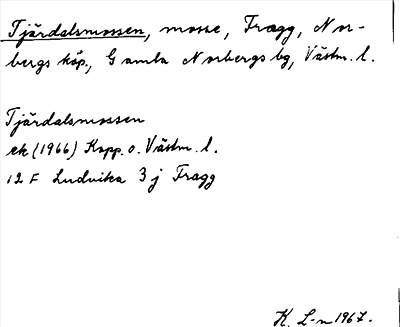 Tjärdalsmossen, mosse, Fragg, Nor-
bergs köp., Gamla Norbergs bg, Västm. l.
Tjärdalsmossen
ek (1966) Kopp. o. Västm. l.
12 F Ludvika 3 j Fragg
K. L-n 1967.